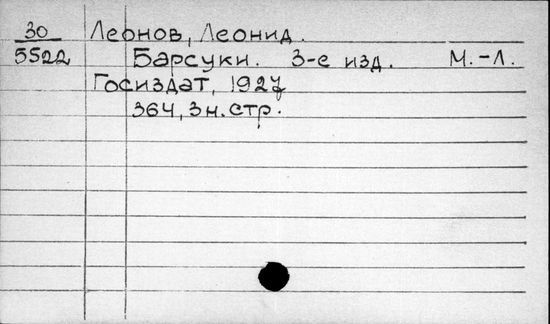 30 Леонов, Леонид.
5522 Барсуки. 3-е изд. М.-Л.
Госиздат, 1927
364, 3 н. стр.